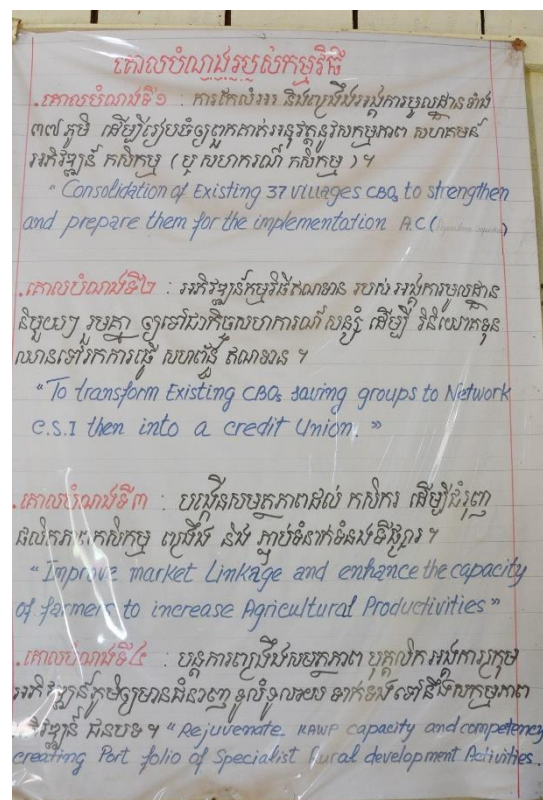 គោលបំណងរបស់កម្មវិធី
.គោលបំណងទី១ : ការកែលំអរ និងពង្រឹងអង្គការមូលដ្ឋានទាំង
៣៧ ភូមិ ដើម្បីរៀបចំឲ្យពួកគាត់អនុវត្តនូវសកម្មភាព សហគមន៍
អភិវឌ្ឍន៍ កសិកម្ម ( ឬ សហករណ៍ កសិកម្ម ) ។
" Consolidation of Existing 37 villages CBOs to strengthen
and prepare them for the implementation A.C (
.គោលបំណងទី២ : អភិវឌ្ឍន៍កម្មវិធីឥណទាន របស់ អង្គការមូលដ្ឋាន
និមួយៗ រួមគ្នា ឲ្យទៅជាកិច្ចសហការណ៍ សន្សំ ដើម្បី វិនិយោគទុន
ឈានទៅរកការធ្វើ សហព័ន្ធ ឥណទាន ។
" To transform Existing CBOs saving groups to Network
C.S.I then into a credit Union. "
.គោលបំណងទី៣ : បង្កើនសមត្ថភាពដល់ កសិករ ដើម្បីជំរុញ
ផលិតភាពកសិកម្ម ពង្រឹង និង ភ្ជាប់ទំនាក់ទំនងទីផ្សារ ។
" Improve market Linkage and enhance the capacity
of farmers to increase Agricultural Productivities "
.គោលបំណងទី៤ : បន្តការពង្រឹងសមត្ថភាព បុគ្គលិក អង្គការក្រុម
អភិវឌ្ឍន៍ភូមិឲ្យមានជំនាញ ទូលំទូលាយ ទាក់ទង ទៅនឹងសកម្មភាព
អភិវឌ្ឍន៍ ជនបទ ។ " Rejuvenate KAWP capacity and competency
creating Port folio of Specialist Rural development Activities.